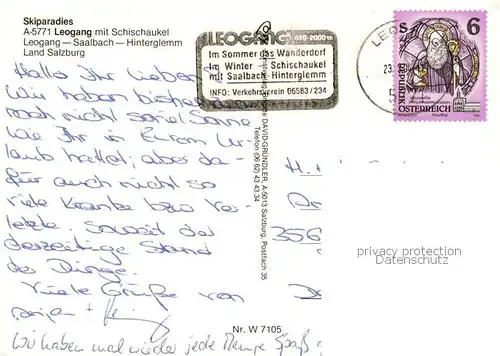 Skiparadies
A-5771 Leogang mit Schischaukel
Leogang — Saalbach — Hinterglemm
Land Salzburg
LEOGANG 800-2000m
Im Sommer das Wanderdorf
Im Winter Schischaukel
mit Saalbach-Hinterglemm
INFO: Verkehrsverein 06583/234
LEO
23.
S 6
REPUBLIK ÖSTERREICH
Hallo Ihr Lieben
Wir haben bisher
noch nicht soviel Sonne
wie Ihr in Eurem Ur-
laub hattet; aber da-
für auch nicht so
viele Kranke bzw Ver-
letzte. Soweit der
derzeitige Stand
der Dinge.
Viele Grüße von
Wir haben mal wieder jede Menge Spaß
DAVID-GRÜNDLER, A-5013 Salzburg, Postfach 35
Telefon (06 62) 43 43 34
H.
356
privacy protection
Datenschutz
Nr. W 7105